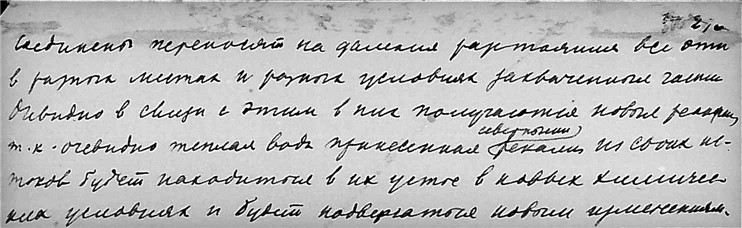 соединены переносят на далекия разстояния все эти
в разных местах и разных условиях захваченные части
Очевидно в связи с этим в них получаются новые реакции,
т. к. очевидно теплая вода принесенная северными реками из своих ис-
токов будет находиться в их устье в новых химичес-
ких условиях и будет подвергаться новым изменениям.